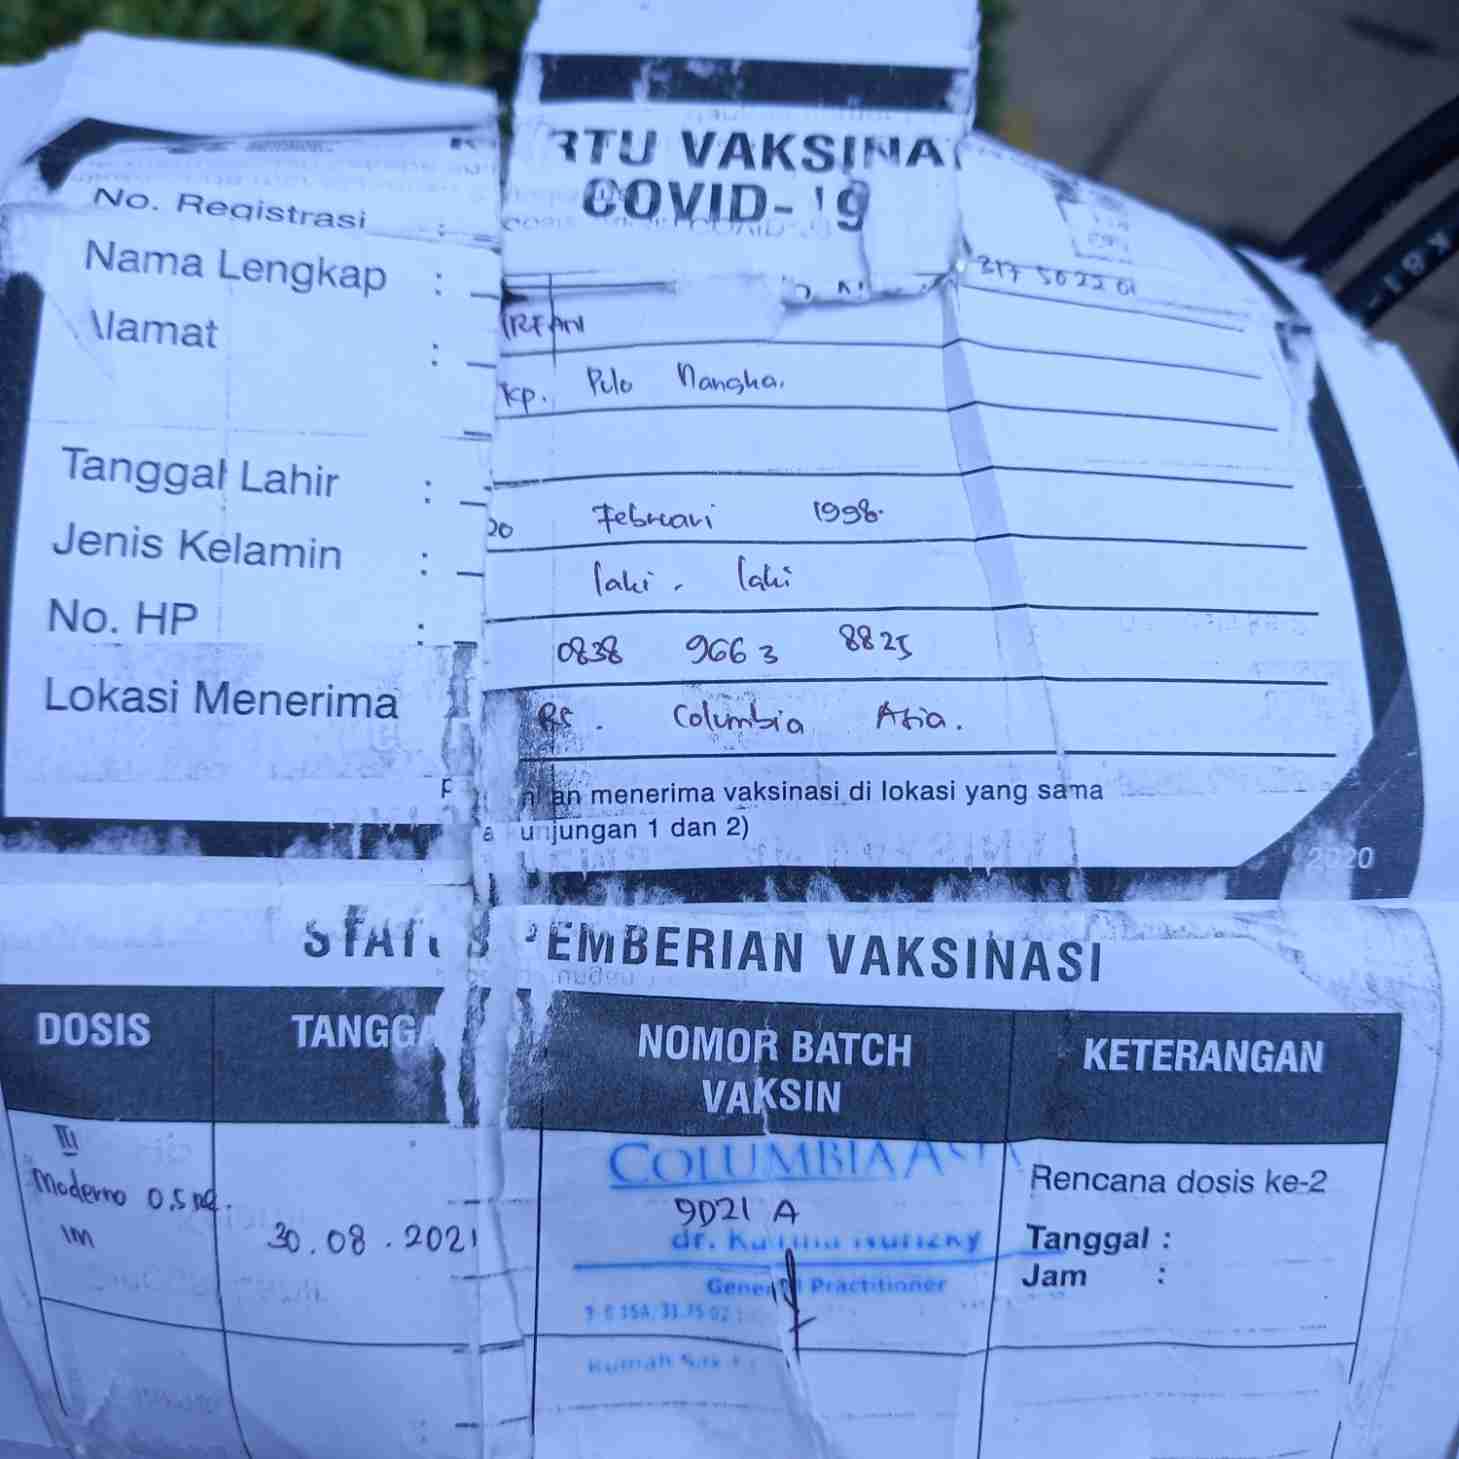 VAKSINA
COVID-19
No. Registrasi :
317 502201
Nama Lengkap : IRFAN
Alamat : Kp. Pulo Nangka.
Tanggal Lahir : 20 Februari 1998.
Jenis Kelamin : laki - laki
No. HP : 0838 9663 8825
Lokasi Menerima RS. Columbia Asia.
menerima vaksinasi di lokasi yang sama
unjungan 1 dan 2)
2020
STATUS PEMBERIAN VAKSINASI
DOSIS TANGGA NOMOR BATCH VAKSIN KETERANGAN
III
Moderno 0.5
IM
30.08.2021
COLUMBIA ASIA
9021 A
dr.
General Practitioner
Rumah
Rencana dosis ke-2
Tanggal :
Jam :